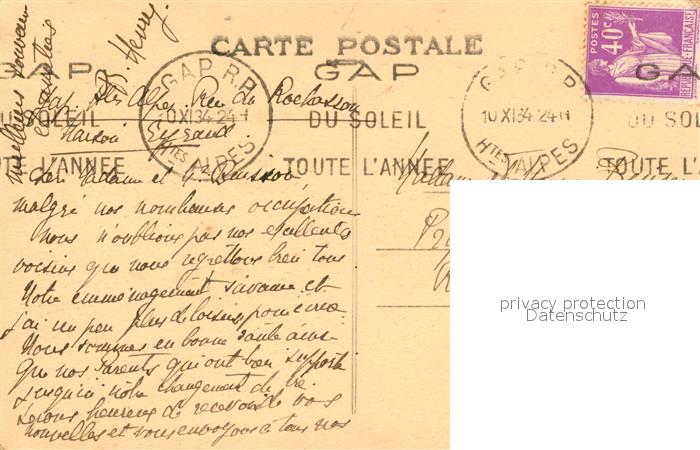 CARTE POSTALE
POSTES
40c
REPUBLIQUE FRANÇAISE
GAP
GAP
GA
DU SOLEIL
DU SOLEIL
DU SOLEIL
TOUTE L'ANNEE
TOUTE L'ANNEE
TOUTE L'
GAP R.P.
10 XI 34 24H
HTES ALPES
GAP R.P.
10 XI34 24H
HTES ALPES
Gap Htes Alpes Rue du Rochasson
Maison Eyraud
Cher Madame et M. Buisson
malgré nos nombreuses occupations
nous n'oublions pas nos excellents
voisins que nous regrettons bien tous
Notre emménagement s'avance et
j'ai un peu plus de loisirs pour écrire
Nous sommes en bonne santé ainsi
que nos Parents qui ont bien supporté
jusqu'ici notre changement de vie.
Serons heureux de recevoir de vos
nouvelles et vous envoyons à tous nos
meilleurs souvenirs
et amitiés
B. Henry
Madame
privacy protection
Datenschutz